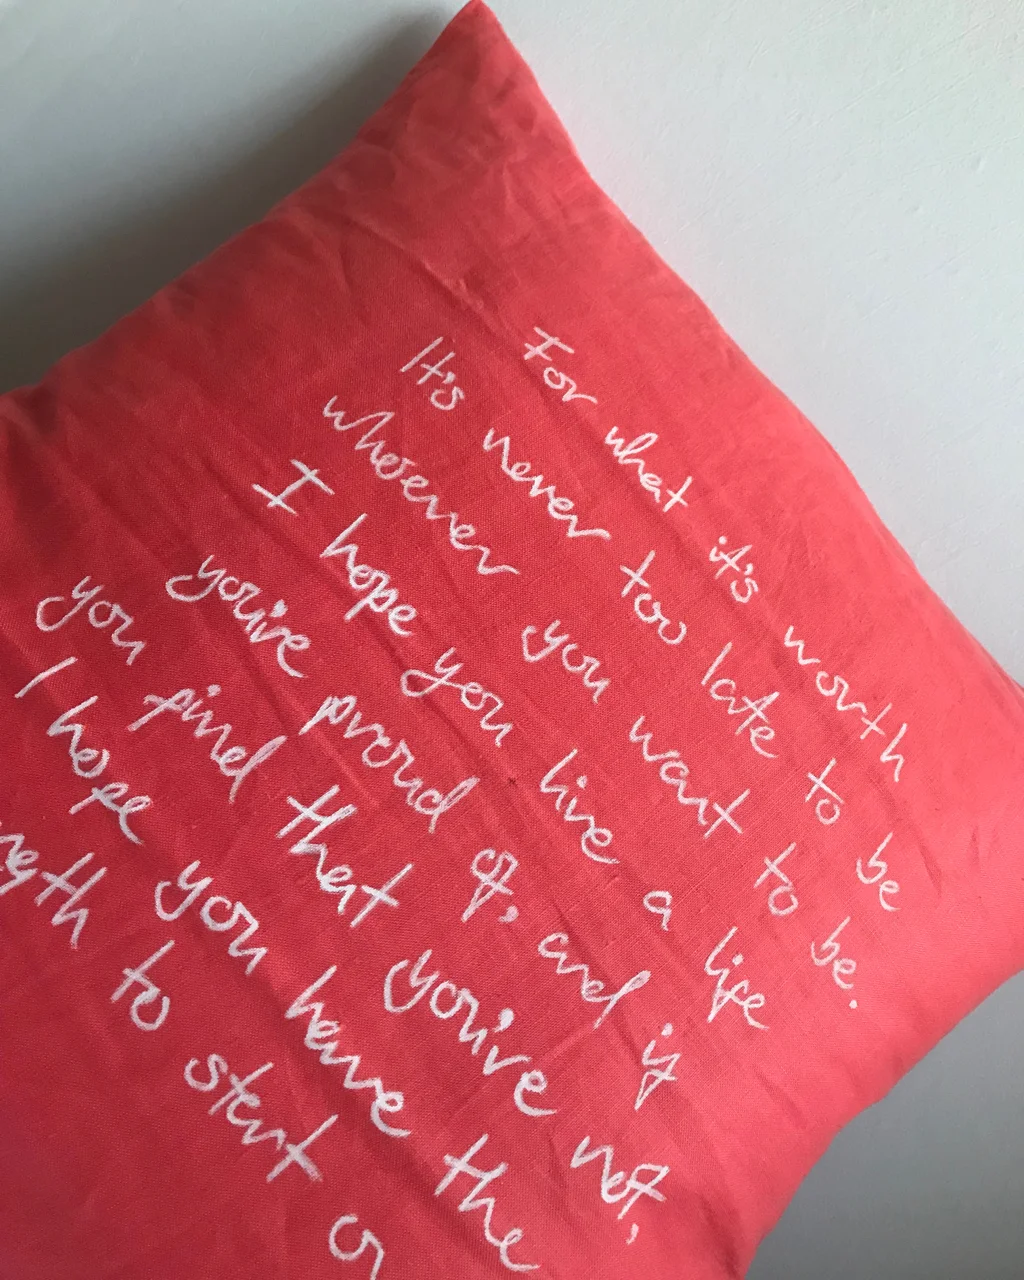 For what it's worth
It's never too late to be
whoever you want to be.
I hope you live a life
you're proud of, and if
you find that you're not,
I hope you have the
to start